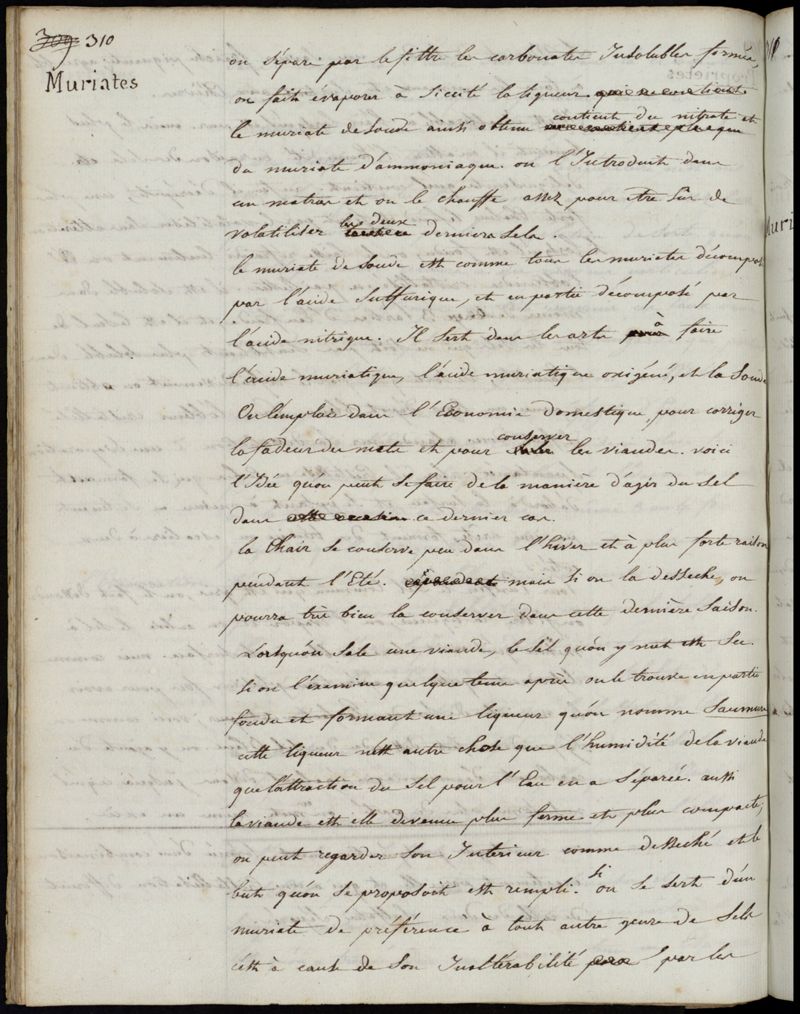 309 310
Muriates
on sépare par le filtre les carbonates Insolubles formés,
on fait évaporer à siccité la liqueur
contient du nitrate et
le muriate de soude ainsi obtenu
du muriate d'ammoniaque on l'Introduit dans
un matras et on le chauffe assez pour etre sûr de
les deux
volatiliser derniers sels.
le muriate de soude est comme tous les muriates décomposé
par l'acide sulfurique, et en partie décomposé par
l'acide nitrique. Il sert dans les arts à faire
l'acide muriatique, l'acide muriatique oxigéné, et la Soude
On l'emploie dans l'Economie domestique pour corriger
conserver
la fadeur des mets et pour les viandes. voici
l'Idée qu'on peut se faire de la manière d'agir du sel
dans cette occasion ce dernier cas.
la Chair se conserve peu dans l'hiver et à plus forte raison
pendant l'Eté. cependant mais si on la desseche, on
pourra très bien la conserver dans cette dernière Saison.
Lorsqu'on Sale une viande, le Sel qu'on y met est Sec
Si on l'examine quelque tems après on le trouve en partie
fondu et formant une liqueur qu'on nomme Saumure
cette liqueur n'est autre chose que l'humidité de la viande
que l'attraction du Sel pour l'Eau en a Séparée. aussi
la viande est elle devenue plus ferme et plus compacte;
on peut regarder Son Interieur comme desseché et le
but qu'on se proposoit est rempli. Si on se sert d'un
muriate de préférence à tout autre genre de Sels
c'est à cause de Son Inaltérabilité par les
Muri